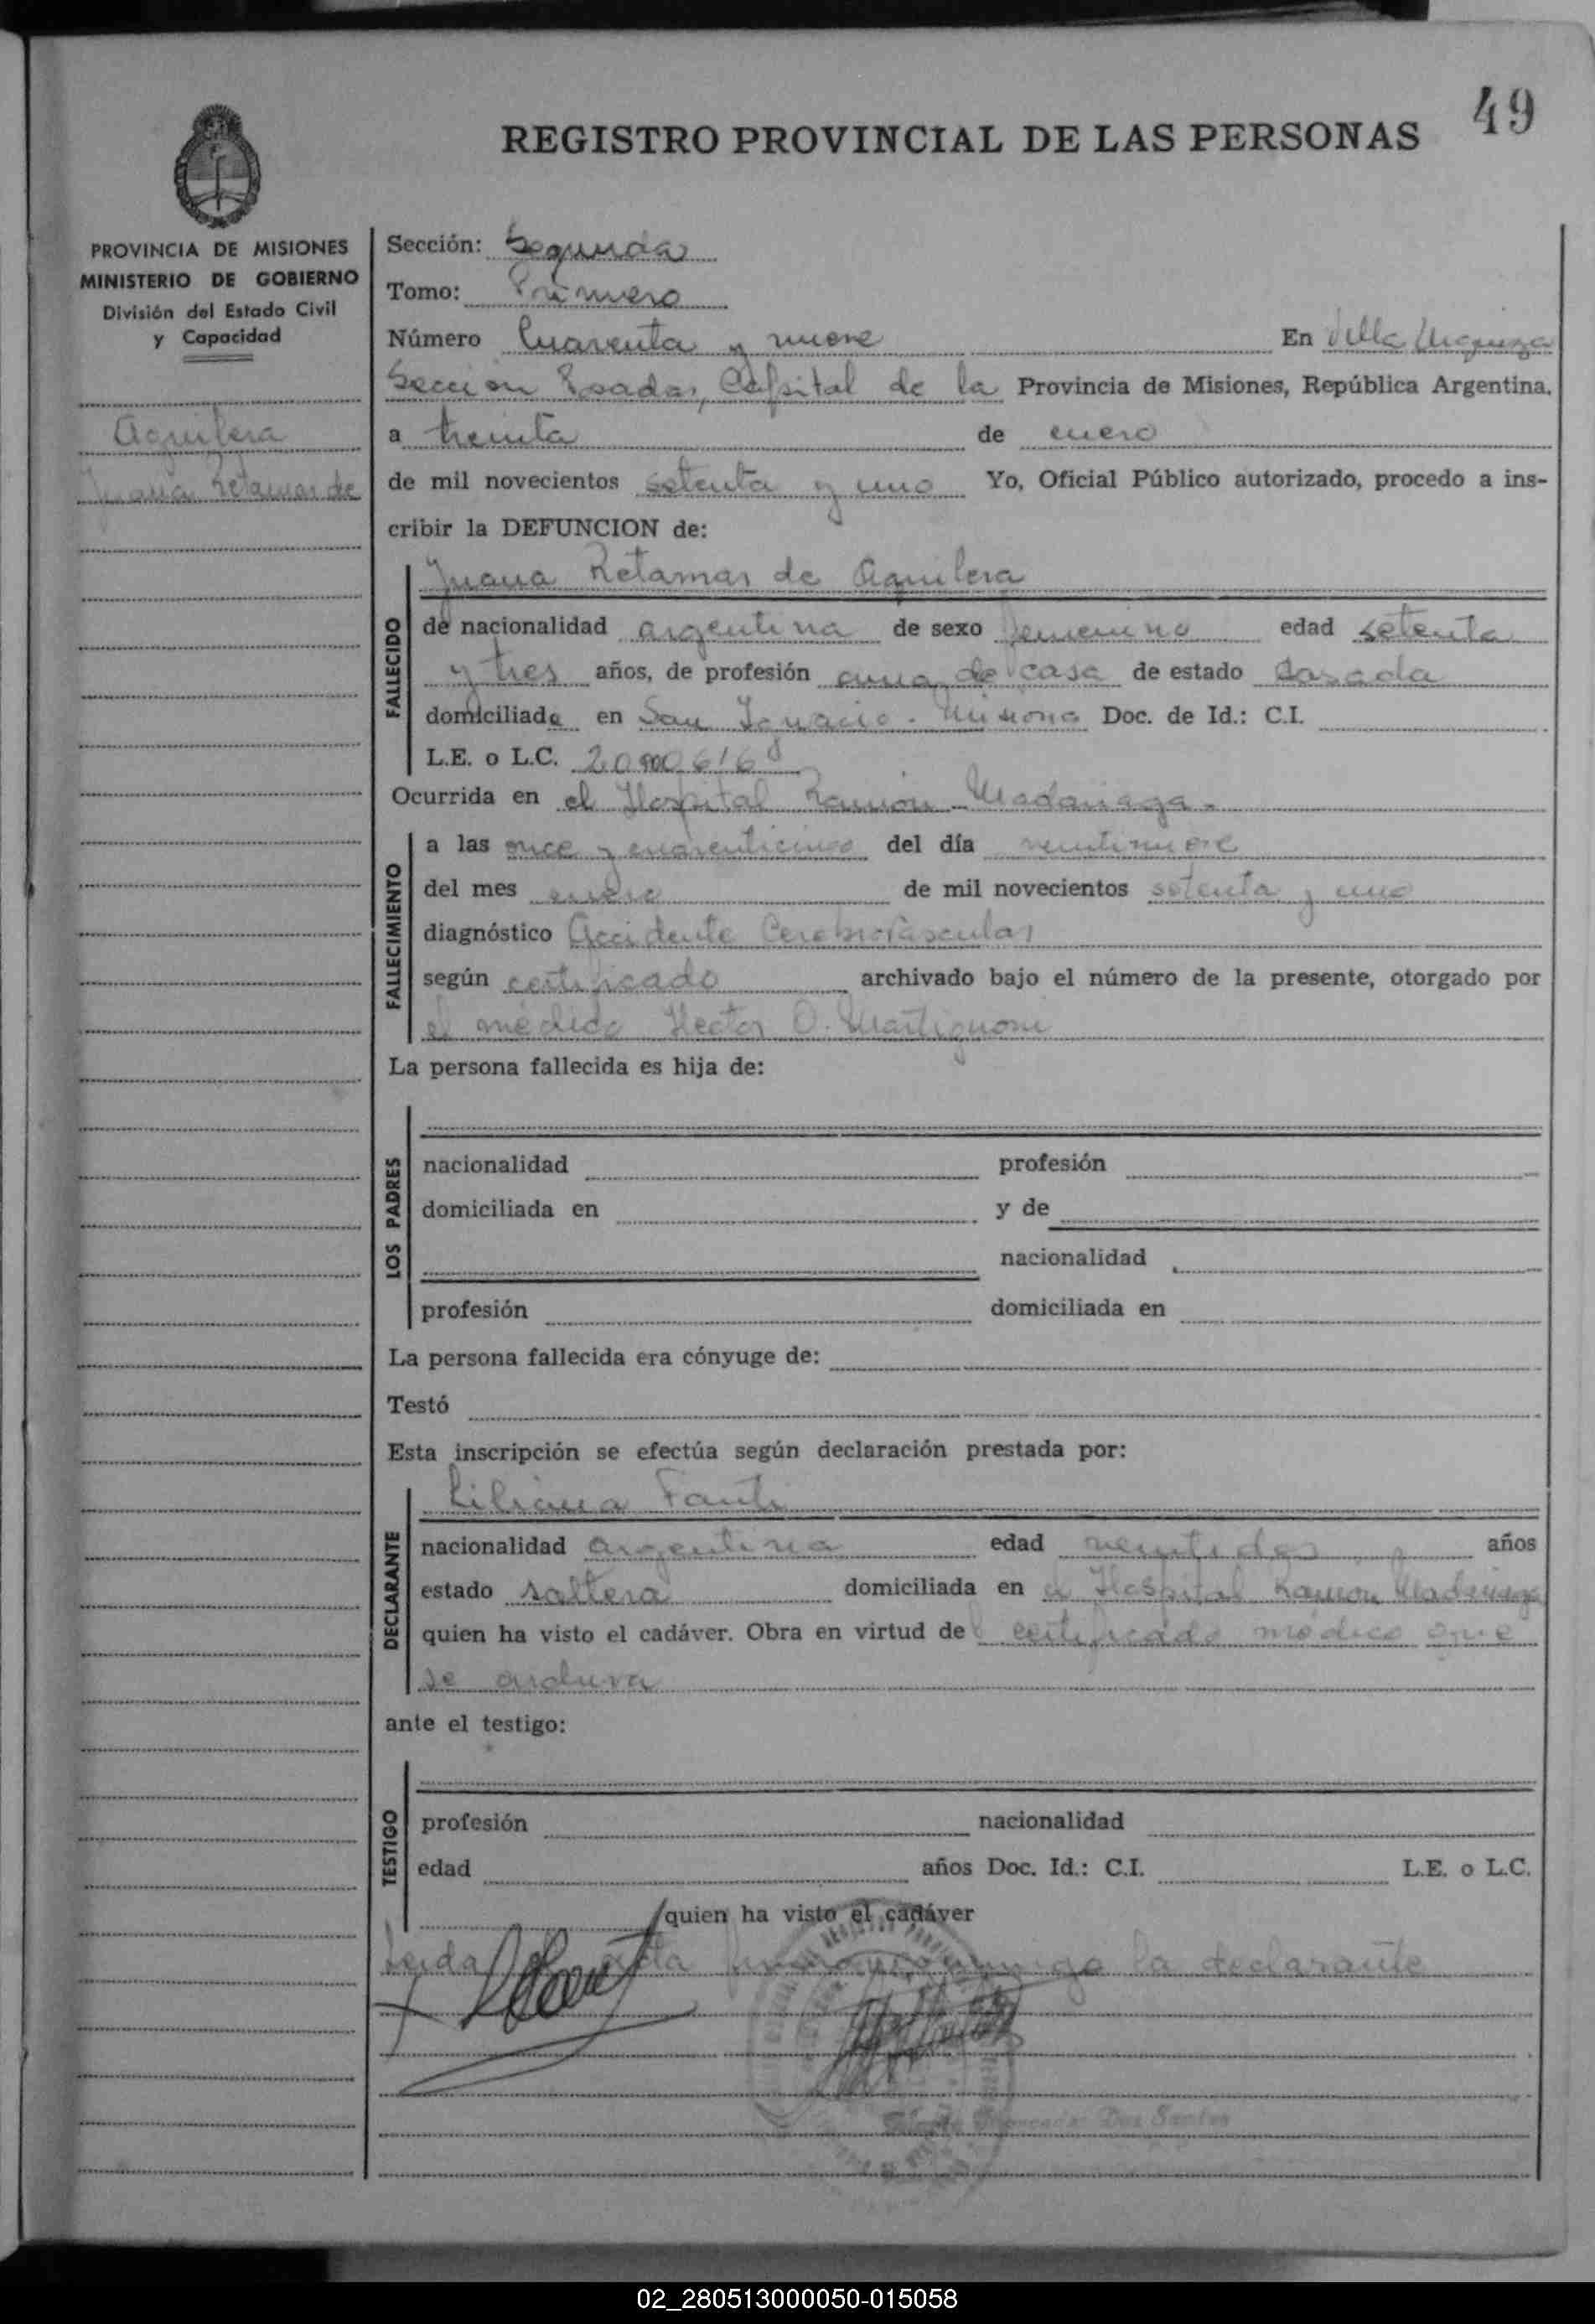 49
REGISTRO PROVINCIAL DE LAS PERSONAS
PROVINCIA DE MISIONES
MINISTERIO DE GOBIERNO
División del Estado Civil
y Capacidad
Aguilera
Juana Retamar de
Sección: Segunda
Tomo: Primero
Número Cuarenta y nueve En Villa Urquiza
Sección Posadas, Capital de la Provincia de Misiones, República Argentina.
a treinta de enero
de mil novecientos setenta y uno Yo, Oficial Público autorizado, procedo a ins-
cribir la DEFUNCION de:
FALLECIDO
Juana Retamar de Aguilera
de nacionalidad argentina de sexo femenino edad setenta
y tres años, de profesión ama de casa de estado casada
domiciliada en San Ignacio - Misiones Doc. de Id.: C.I.
L.E. o L.C.
Ocurrida en el Hospital Ramón Madariaga.
FALLECIMIENTO
a las once y cuarenticinco del día veintinueve
del mes enero de mil novecientos setenta y uno
diagnóstico Accidente Cerebrovascular
según certificado archivado bajo el número de la presente, otorgado por
el médico Hector O. Martignoni
La persona fallecida es hija de:
LOS PADRES
nacionalidad profesión
domiciliada en y de
nacionalidad
profesión domiciliada en
La persona fallecida era cónyuge de:
Testó
Esta inscripción se efectúa según declaración prestada por:
DECLARANTE
Liliana Fanti
nacionalidad argentina edad veintidos años
estado soltera domiciliada en el Hospital Ramon Madariaga
quien ha visto el cadáver. Obra en virtud del certificado médico que
se archiva
ante el testigo:
TESTIGO
profesión nacionalidad
edad años Doc. Id.: C.I. L.E. o L.C.
quien ha visto el cadáver
Leida acta la declarante
Dos Santos
02_280513000050-015058